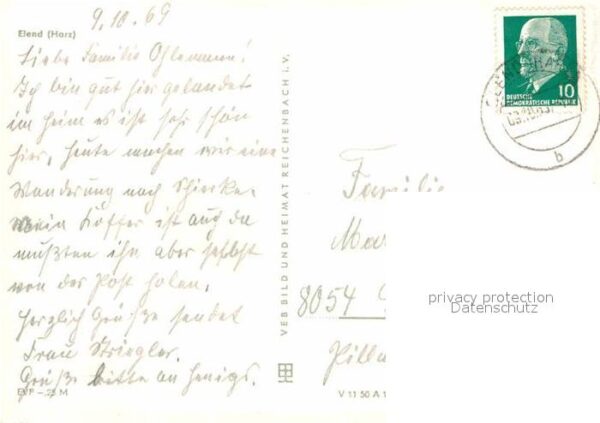 9.10.69
Elend (Harz)
Liebe Familie Ohlemann!
Ich bin gut hier gelandet
im Heim es ist sehr schön
hier, heute machen wir eine
Wanderung nach Schierke.
Mein Koffer ist auch da
mußten ihn aber selbst
von der Post holen.
Herzlich Grüße sendet
Frau Striegler.
Grüße bitte an Henigs.
EVP -,25 M
VEB BILD UND HEIMAT REICHENBACH i. V.
V 11 50 A 1
10
DEUTSCHE
DEMOKRATISCHE REPUBLIK
b
Familie
Mar
8054
privacy protection
Datenschutz